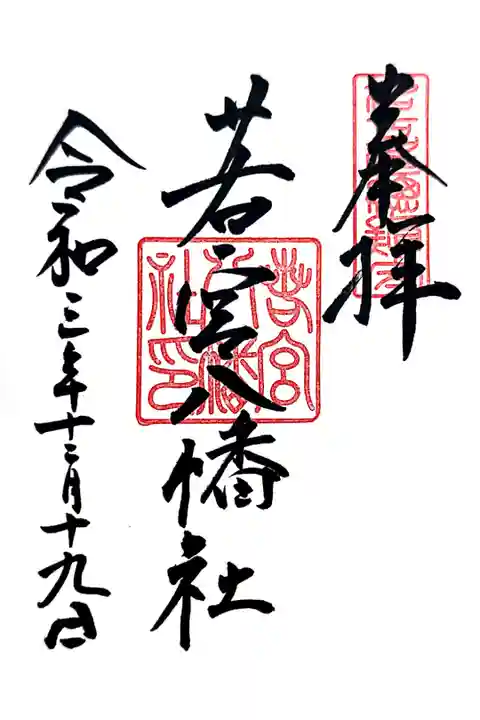 奉拝
若宮八幡社
令和三年十二月十九日
若宮八幡社印